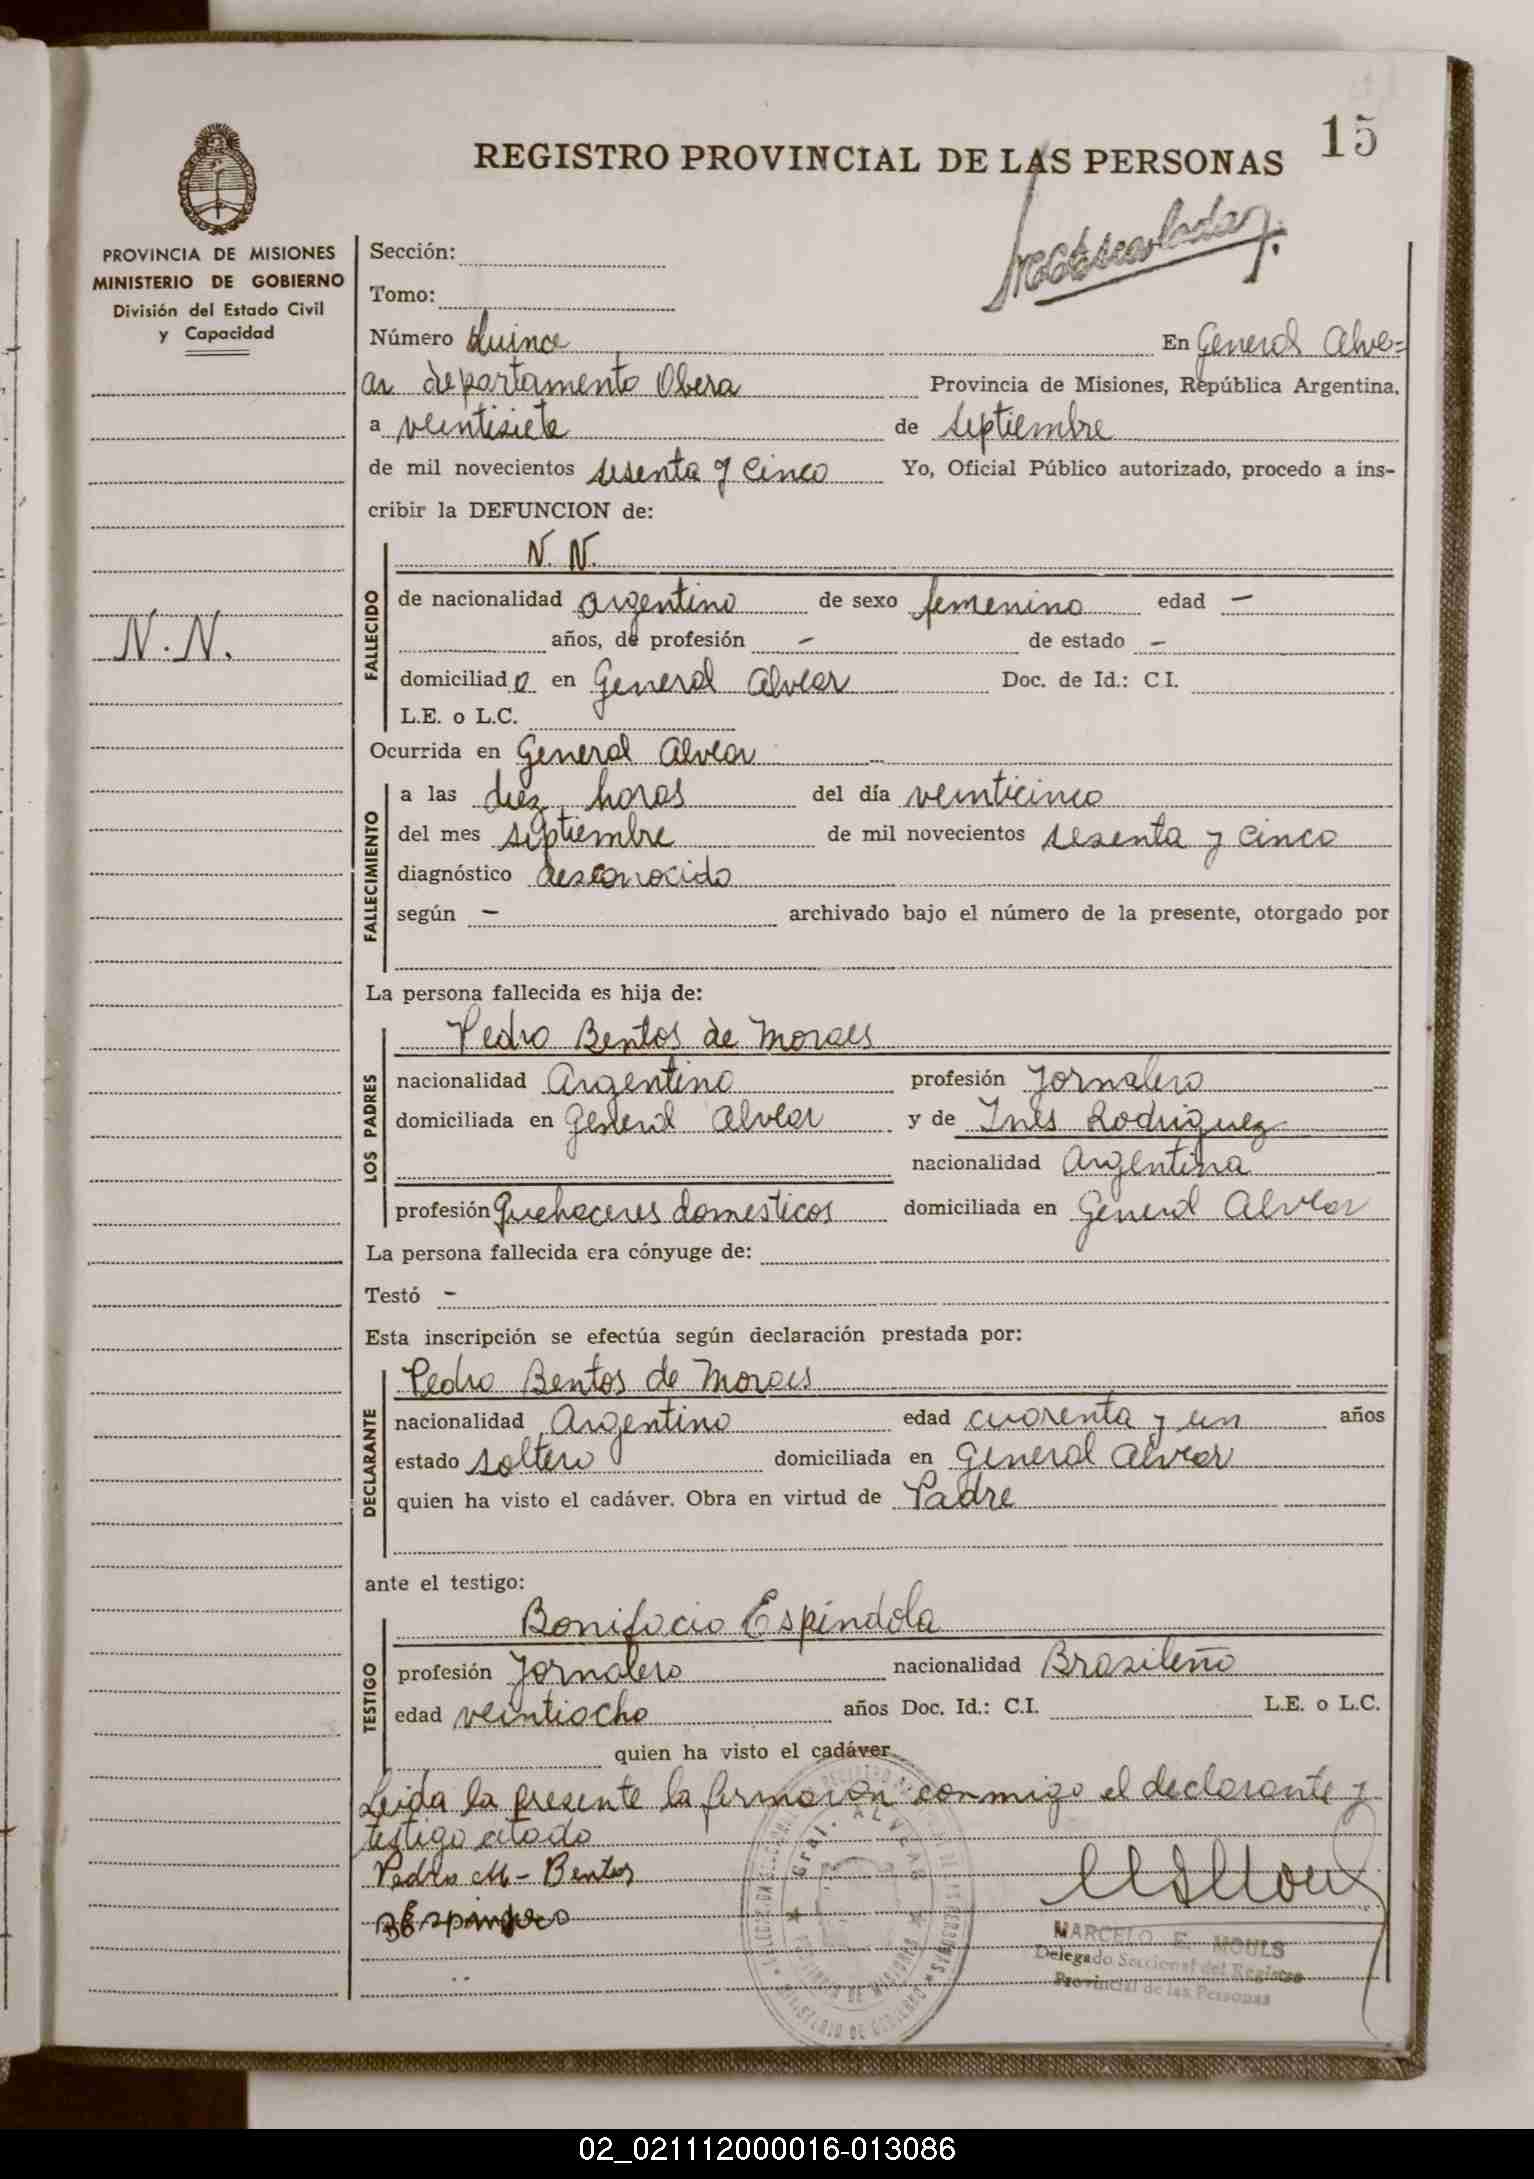 15
REGISTRO PROVINCIAL DE LAS PERSONAS
PROVINCIA DE MISIONES
MINISTERIO DE GOBIERNO
División del Estado Civil
y Capacidad
N. N.
Sección:
Tomo:
Número Quince En General Alve=
ar departamento Obera Provincia de Misiones, República Argentina,
a veintisiete de septiembre
de mil novecientos sesenta y cinco Yo, Oficial Público autorizado, procedo a ins-
cribir la DEFUNCION de:
N. N.
FALLECIDO
de nacionalidad argentino de sexo femenino edad —
años, de profesión - de estado -
domiciliado en General Alvear Doc. de Id.: C I.
L.E. o L.C.
Ocurrida en General Alvear
FALLECIMIENTO
a las diez horas del día veinticinco
del mes septiembre de mil novecientos sesenta y cinco
diagnóstico desconocido
según — archivado bajo el número de la presente, otorgado por
La persona fallecida es hija de:
LOS PADRES
Pedro Bentos de Moraes
nacionalidad Argentino profesión Jornalero
domiciliada en General Alvear y de Ines Rodriguez
nacionalidad Argentina
profesión Quehaceres domesticos domiciliada en General Alvear
La persona fallecida era cónyuge de:
Testó -
Esta inscripción se efectúa según declaración prestada por:
DECLARANTE
Pedro Bentos de Moraes
nacionalidad Argentino edad cuarenta y un años
estado soltero domiciliada en General Alvear
quien ha visto el cadáver. Obra en virtud de Padre
ante el testigo:
TESTIGO
Bonifacio Espindola
profesión Jornalero nacionalidad Brasileño
edad veintiocho años Doc. Id.: C.I. L.E. o L.C.
quien ha visto el cadáver.
Leida la presente la firmaron conmigo el declarante y
testigo citado
Pedro M- Bentos
Gral. ALVEAR
PROVINCIA DE MISIONES
MINISTERIO DE GOBIERNO
MARCELO E. MOULS
Delegado Seccional del Registro
Provincial de las Personas
02_021112000016-013086